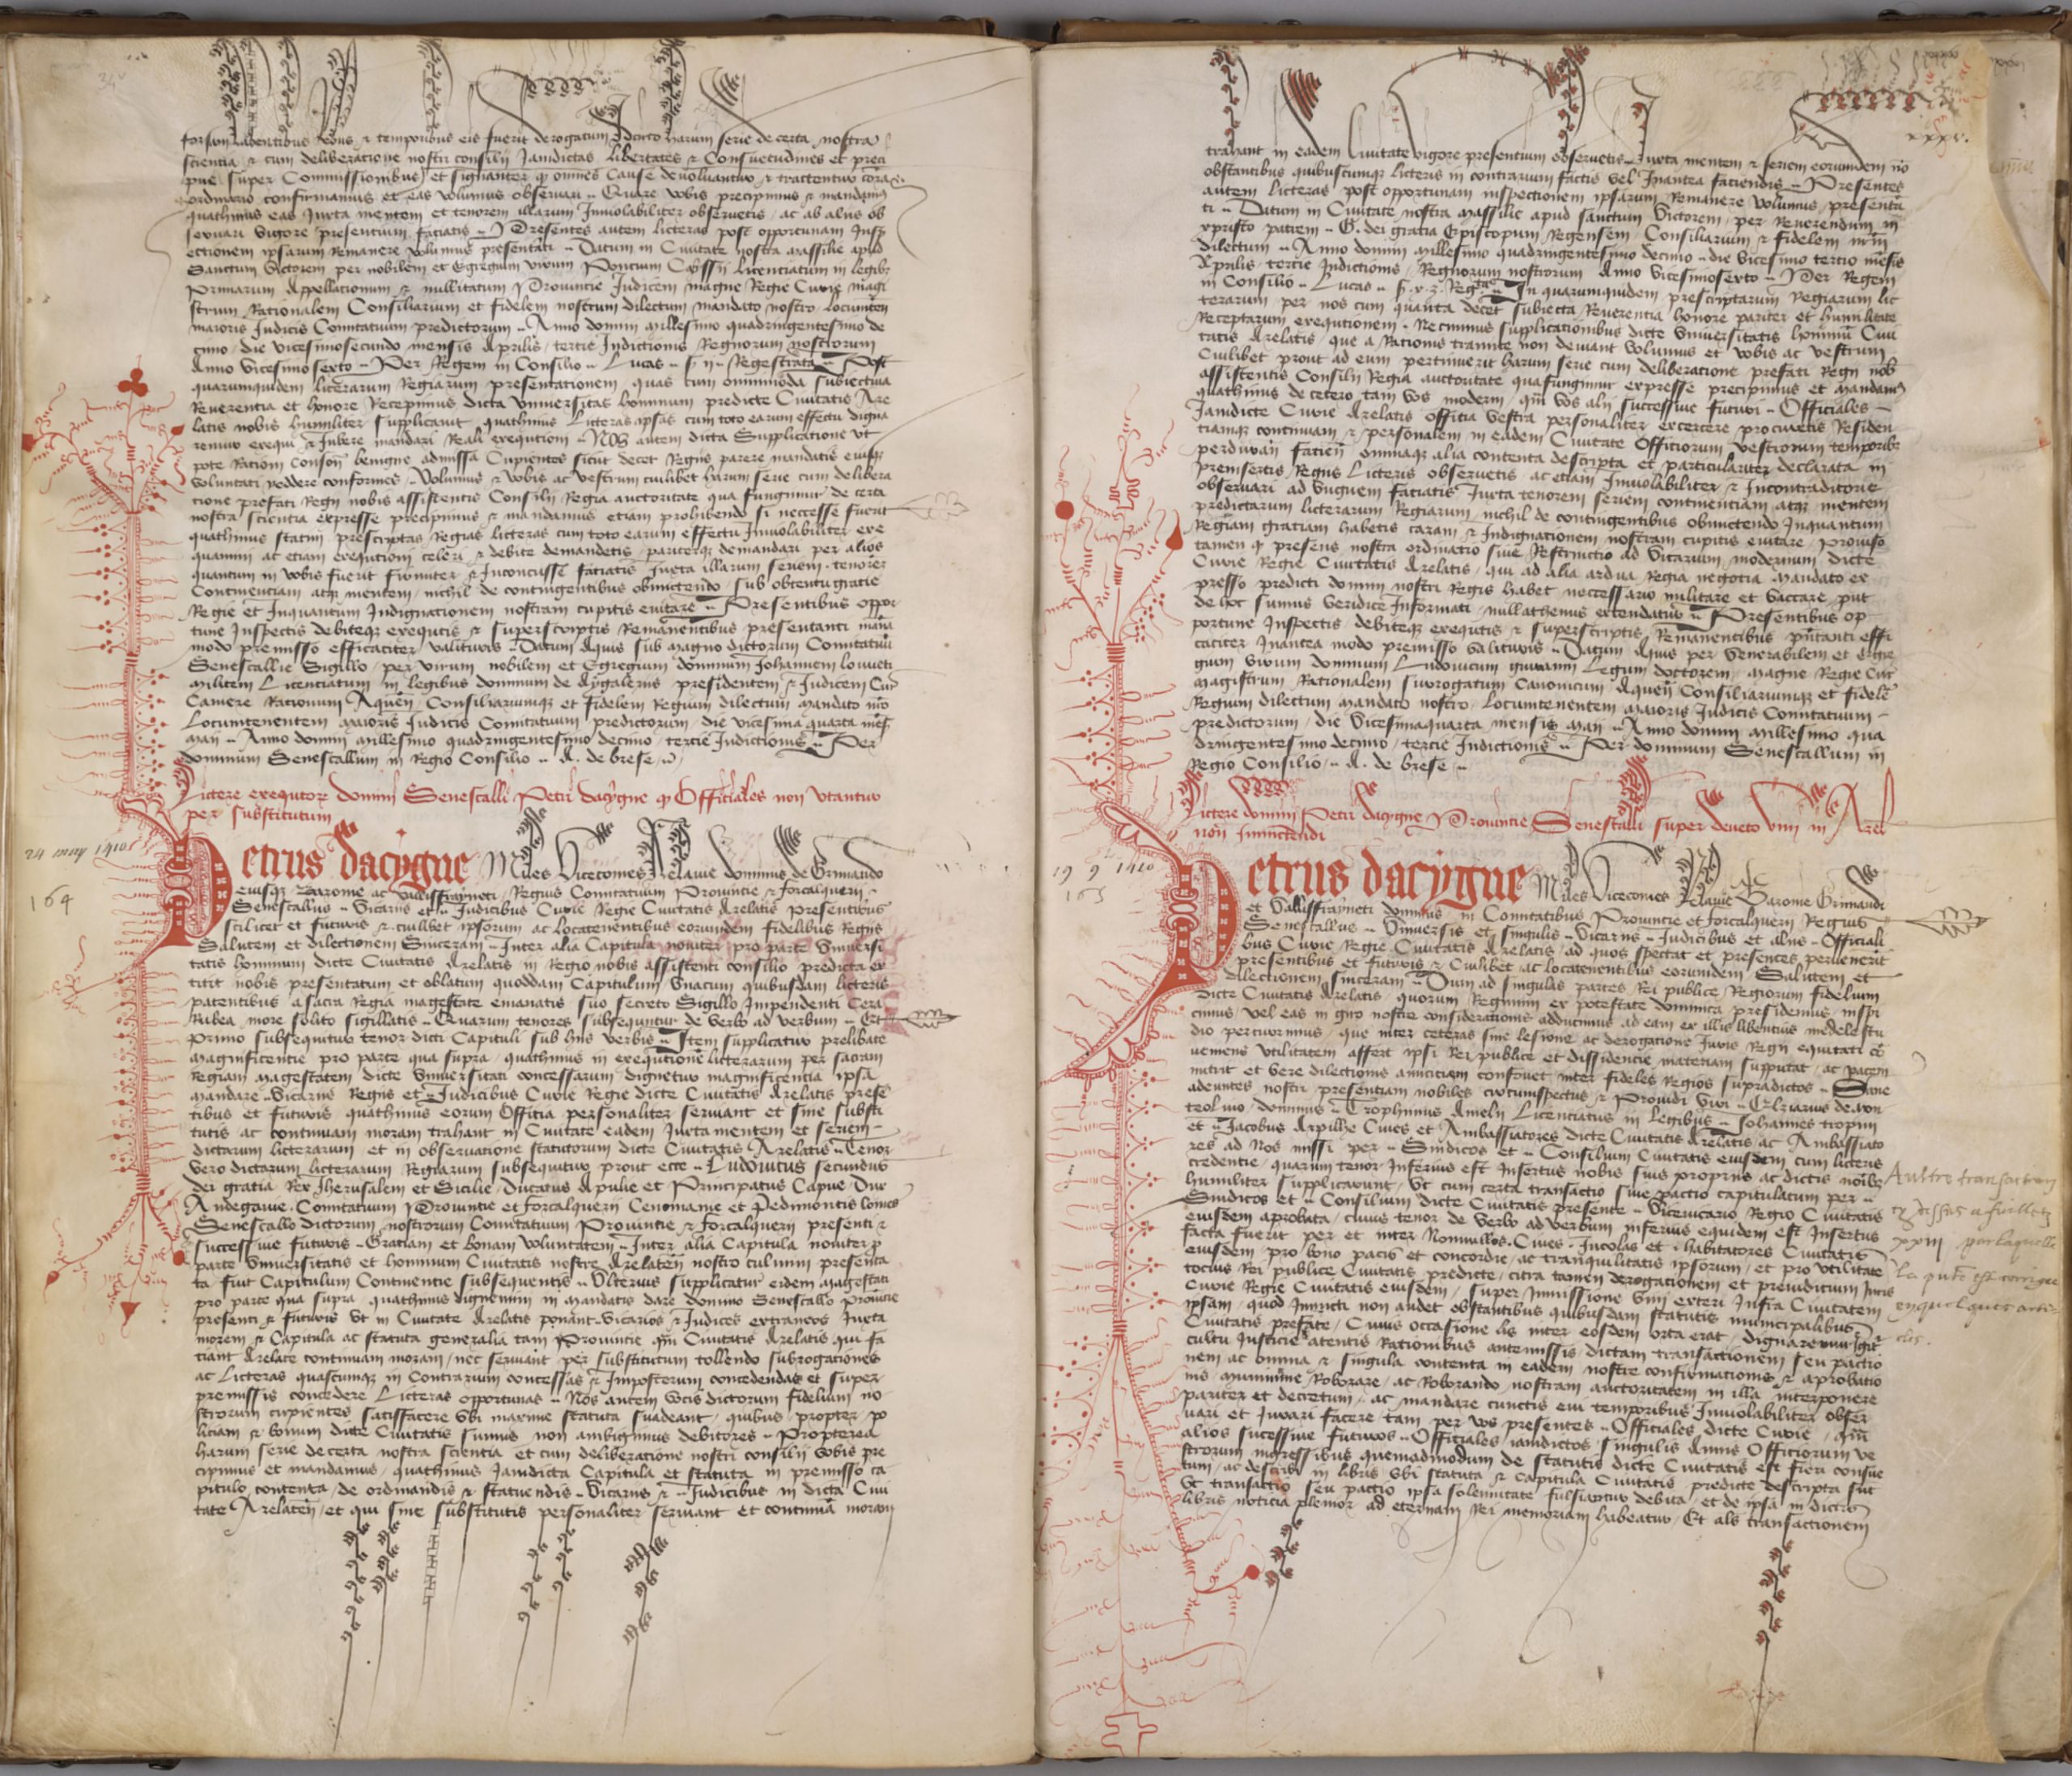 forsam labentibus ... & temporibus eis fuerit derogatum Idcirco harum serie de certa nostra
scientia & cum deliberacione nostri consilii Jamdictas libertates & Consuetudines et preci
pue super Commissionibus et signanter q omnes Cause devolvantur & tractentur cora
ordinario confirmamus et eas volumus observari Quare vobis precipimus & mandamus
quathinus eas Juxta mentem et tenorem illarum Inviolabiliter observetis ac ab aliis ob
servari vigore presentium faciatis Presentes autem licteras post opportunam Insp
ectionem ipsarum Remanere volumus presentati Datum in Civitate nostra Massilie apud
Sanctum Victorem per nobilem et Egregium virum Poncium Cayssii licenciatum in legib
Primarum Appellationum & nullitatum Provincie Judicem magne Regie Curie magi
strum Rationalem Consiliarium et fidelem nostrum dilectum mandato nostro locumten
maioris Judicis Comitatuum predictorum Anno domini millesimo quadringentesimo de
cimo die vicesimosecundo mensis Aprilis tercie Indictionis Regnorum nostrorum
Anno vicesimo sexto Per Regem in Consilio Lucas Regestrata Post
quarumquidem licterarum Regiarum presentationem quas cum omnimoda subiectiva
Reverentia et honore Recepimus dicta Universitas hominum predicte Civitatis Are
latis nobis humiliter supplicavit quathinus licteras ipsas cum toto earum effectu digna
remur exequi & Jubere mandari Reali exequtioni Nos autem dicta Supplicatione ut
pote Rationi conson benigne admissa Cupientes sicut decet Regiis parere mandatis eiusq
voluntati reddere conformes Volumus & vobis ac vestrum cuilibet harum serie cum delibera
tione prefati Regii nobis assistentis Consilii Regia auctoritate qua fungimur de certa
nostra scientia expresse precipimus & mandamus etiam prohibendo si necesse fuerit
quathinus statim prescriptas Regias licteras cum toto earum effectu Inviolabiliter exe
quamini ac etiam exequtioni celeri & debite demandetis pariterq demandari per alios
quantum in vobis fuerit firmiter & Inconcusse faciatis Juxta illarum seriem tenorem
Continenciam atq mentem nichil de contingentibus obmictendo sub obtentu gratie
Regie et Inquantum Indignationem nostram cupitis evitare Presentibus oppor
tune Inspectis debiteq exequtis & superscriptis Remanentibus presentanti inantea
modo premisso efficaciter valituris Datum Aquis sub magno dictorum Comitatuum
Senescallie Sigillo per virum nobilem et Egregium dominum Johannem loveti
militem Licentiatum in legibus dominum de Aygaleriis presidentem & Judicem Cur
Camere Rationum Aquen Consiliariumq et fidelem Regium dilectum mandato nro
Locumtenentem maioris Judicis Comitatuum predictorum die vicesima quarta mens
Maii Anno domini millesimo quadringentesimo decimo tercie Indictionis Per
dominum Senescallum in Regio Consilio A. de brese
Lictere exequtor domini Senescalli Petri dacygne q Officiales non utantur
per substitutum
24 may 1410
164
Petrus dacygne Miles Vicecomes Relanie dominus de Grimaudo
eiusq Baronie ac vallisfrayneti Regius Comitatuum Provincie & forcalquerii
Senescallus Vicariis et Judicibus Curie Regie Civitatis Arelatis presentibus
scilicet et futuris & cuilibet ipsorum ac locatenentibus eorumdem fidelibus Regiis
Salutem et dilectionem Sinceram Inter alia Capitula noviter pro parte Universi
tatis hominum dicte Civitatis Arelatis in Regio nobis assistenti consilio predicta ex
titit nobis presentatum et oblatum quoddam Capitulum Unacum quibusdam licteris
patentibus a sacra Regia magestate emanatis suo secreto Sigillo Impendenti Cera
Rubea more solito sigillatis Quarum tenores subsequntur de verbo ad verbum Et
primo subsequitur tenor dicti Capituli sub hiis verbis Item supplicatur prelibate
magnificentie pro parte qua supra quathinus in exequtione licterarum per sacram
Regiam magestatem dicte Universitati concessarum dignetur magnificentia ipsa
mandare Vicariis Regiis et Judicibus Curie Regie dicte Civitatis Arelatis prese
tibus et futuris quathinus eorum Officia personaliter serviant et sine substi
tutis ac continuam moram trahant in Civitate eadem Juxta mentem et seriem
dictarum licterarum et in observatione statutorum dicte Civitatis Arelatis Tenor
vero dictarum licterarum Regiarum subsequitur prout ecce Ludovicus secundus
dei gratia Rex Jherusalem et Sicilie Ducatus Apulie et Principatus Capue Dux
Andegavie Comitatuum Provincie et forcalquerii Cenomanie et Pedimontis Comes
Senescallo dictorum nostrorum Comitatuum Provincie & forcalquerii presenti &
successive futuris Gratiam et bonam voluntatem Inter alia Capitula noviter p
parte Universitatis et hominum Civitatis nostre Arelaten nostro culmini presenta
ta fuit Capitulum Continentie subsequentis Ulterius supplicatur eidem magestati
pro parte qua supra quathinus dignemini in mandatis dare domino Senescallo Provincie
presenti & futuris ut in Civitate Arelatis ponant Vicarios & Judices extraneos Juxta
morem & Capitula ac statuta generalia tam Provincie qm Civitatis Arelatis qui fa
ciant Arelate continuam moram nec serviant per substitutum tollendo subrogationes
ac Licteras quascumq in Contrarium concessas & Imposterum concedendas et super
premissis concedere Licteras opportunas Nos autem votis dictorum fidelium no
strorum cupientes satisfacere ubi maxime statuta suadeant quibus propter po
liciam & bonum dicte Civitatis sumus non ambigimus debitores Propterea
harum serie de certa nostra scientia et cum deliberacione nostri consilii vobis pre
cipimus et mandamus quathinus Jamdicta Capitula et statuta in premisso ca
pitulo contenta de ordinandis & statuendis Vicariis & Judicibus in dicta Civi
tate Arelaten et qui sine substitutis personaliter serviant et continua moram
xxxv.
trahant in eadem Civitate vigore presentium observetis Juxta mentem & seriem eorumdem no
obstantibus quibuscumq licteris in contrarium factis vel Inantea faciendis Presentes
autem licteras post opportunam inspectionem ipsarum Remanere volumus presenta
ti Datum in Civitate nostra Massilie apud sanctum Victorem per Reverendum in
xpristo patrem G. dei gratia Episcopum Regensem Consiliarium & fidelem nrm
dilectum Anno domini millesimo quadringentesimo decimo die vicesimo tercio mensis
Aprilis tercie Indictionis Regnorum nostrorum Anno vicesimosexto Per Regem
in Consilio Lucas In quarumquidem prescriptarum Regiarum lic
terarum per nos cum quanta decet subiecta Reverentia honore pariter et humilitate
Receptarum exequtionem Necminus supplicationibus dicte Universitatis hominum Civi
tatis Arelatis que a Rationis tramite non deviant volumus et vobis ac vestrum
Cuilibet prout ad eum pertinuerit harum serie cum deliberacione prefati Regii nob
assistentis Consilii Regia auctoritate qua fungimur expresse precipimus et mandamus
quathinus de cetero tam vos moderni qm vos alii successive futuri Officiales
Jamdicte Curie Arelatis officia vestra personaliter excercere procuretis Residen
tiamq continuam & personalem in eadem Civitate Officiorum vestrorum temporibus
perduran facien omniaq alia contenta descripta et particulariter declarata in
preinsertis Regiis Licteris observetis ac etiam Inviolabiliter & Incontradictorie
observari ad unguem faciatis Juxta tenorem seriem continenciam atq mentem
predictarum licterarum Regiarum nichil de contingentibus obmictendo Inquantum
Regiam gratiam habetis caram & Indignationem nostram cupitis evitare Proviso
tamen q presens nostra ordinatio sive Restrinctio ad Vicarium modernum dicte
Curie Regie Civitatis Arelatis qui ad alia ardua Regia negotia mandato ex
presso predicti domini nostri Regis habet necessario militare et vaccare put
de hoc sumus veridice Informati nullathenus extendatur Presentibus op
portune Inspectis debiteq exequtis & superscriptis Remanentibus pntanti effi
caciter Inantea modo premisso valituris Datum Aquis per venerabilem et Egre
gium virum dominum Ludovicum guiranni Legum doctorem magne Regie Cur
magistrum Rationalem surrogatum Canonicum Aquen Consiliariumq et fidele
Regium dilectum mandato nostro Locumtenentem maioris Judicis Comitatuum
predictorum die vicesimaquarta mensis Maii Anno domini millesimo qua
dringentesimo decimo tercie Indictionis Per dominum Senescallum in
Regio Consilio A. de brese
Lictere domini Petri dacygne Provincie Senescalli super deveto vini in Arel
non Inmictendi
19 9 1410
165
Petrus dacygne Miles Vicecomes Relanie Baronie Grimaudi
et Vallisfrayneti dominus in Comitatibus Provincie et forcalquerii Regius
Senescallus Universis et singulis Vicariis Judicibus et aliis Officiali
bus Curie Regie Civitatis Arelatis ad quos spectat et presentes pervenerit
presentibus et futuris & Cuilibet ac locatenentibus eorumdem Salutem et
dilectionem sinceram Dum ad singulas partes Rei publice Regiorum fidelium
dicte Civitatis Arelatis quorum Regimini ex potestate dominica presidemus inspi
cimus vel eas in giro nostre considerationis adducimus ad eam ex illis libentius medele stu
dio percurrimus que inter ceteras sine lesione ac derogatione Juris Regii equitati co
vemens utilitatem affert ipsi Rei publice et dissidencie materiam supputat ac pacem
nutrit et vere dilectionis amicitiam confovet inter fideles Regios supradictos Sane
adeuntes nostri presentiam nobiles circumspectus & Providi viri Elziarius de mon
teolivo dominus Trophimus Ameli Licenciatus in legibus Johannes tropini
et Jacobus Arpilhe Cives et Ambassiatores dicte Civitatis Arelatis ac Ambassiato
res ad Nos missi per Sindicos et Consilium Civitatis eiusdem cum licteris
credentie quarum tenor Inferius est Insertus nobis suis propriis ac dictis noibus
humiliter supplicarunt ut cum certa transactio sive pactio capitulatum per
Sindicos et Consilium dicte Civitatis presente Vicevicario Regio Civitatis
eiusdem aprobata cuius tenor de verbo ad verbum inferius equidem est Insertus
facta fuerit per et inter Nonnullos Cives Incolas et habitatores Civitatis
eiusdem pro bono pacis et concordie ac tranquilitatis ipsorum et pro utilitate
tocius Rei publice Civitatis predicte citra tamen derogationem et preiudicium Juris
Curie Regie Civitatis eiusdem super Inmissione vini exteri Infra Civitatem
ipsam quod Inmicti non audet obstantibus quibusdam statutis municipalibus
Civitatis prefate Cuius occasione lis inter eosdem orta erat dignaremur Igit
cultu Justicie atentis Rationibus antemissis dictam transactionem seu pactio
nem ac omnia & singula contenta in eadem nostre confirmationis & aprobatio
nis munimine Roborare ac Roborando nostram auctoritatem in illa interponere
pariter et decretum ac mandare cunctis evi temporibus Inviolabiliter obser
vari et Juvari facere tam per vos presentes Officiales dicte Curie qm
alios sucessive futuros Officiales iamdictos singulis Annis Officiorum ve
strorum ingressibus quemadmodum de statutis dicte Civitatis est fieri consue
tum ac describi in libris ubi statuta & Capitula Civitatis predicte descripta sut
ut transactio seu pactio ipsa solemnitate fulsiatur debita et de ipsa in dictis
libris noticia plenior ad eternam Rei memoriam habeatur Et als transactionem
Aultre transaction
cy dessus a fuillet
xxiii par laquelle
la pnte est corrigee
en quelques arti-
cles.